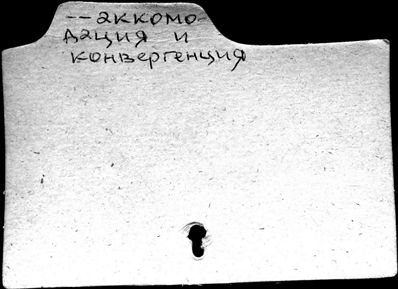 -- аккомо-
дация и
конвергенция